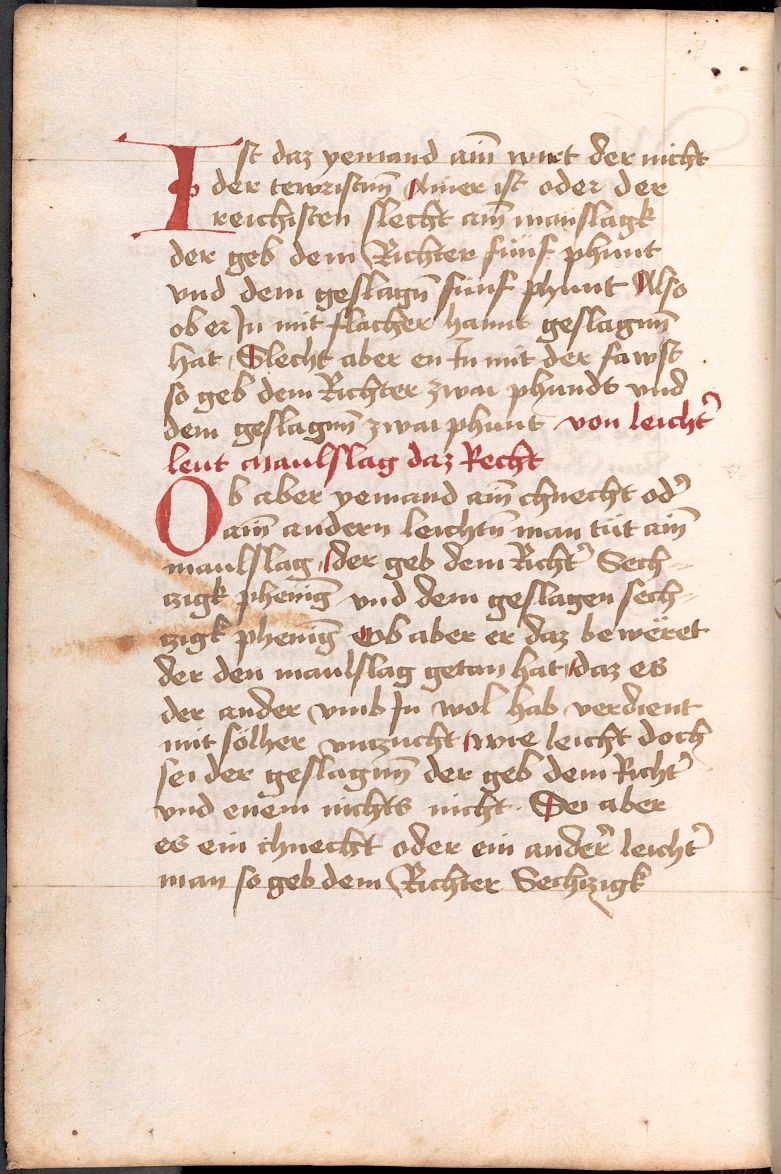 Ist daz yemand ain̄ wirt der nicht
der tewristnn̄ Ainer ist oder der
reichisten slecht ain̄ maủslagk
der geb dem Richter fünf phunt
vnd dem geslagn̄ fünf phunt Also
ob er Jn mit flacher hannt geslagnn̄
hat Slecht aber en In mit der fawst
so geb dem Richter zwai phundt vnd
dem geslagnn̄ zwai phunt von leicht̾
leut maulslag daz Recht
Ob aber yemand ain̄ chnecht od̾
ain̄ andern leichtn̄ man tüt ain̄
maulslag der geb dem Richt̾ Sech-
czigk phenīg vnd dem geslagen sech-
czigk phenīg Ob aber er daz bewëret
der den maulslag getan hat daz es
der ander vmb Jn wol hab verdient
mit sölher vnczucht wie leicht doch
sei der geslagnn̄ der geb dem Richt̾
vnd enem nichts nicht Sei aber
es ein chnecht oder ein ander̾ leicht̾
man so geb dem Richter Sechczigk